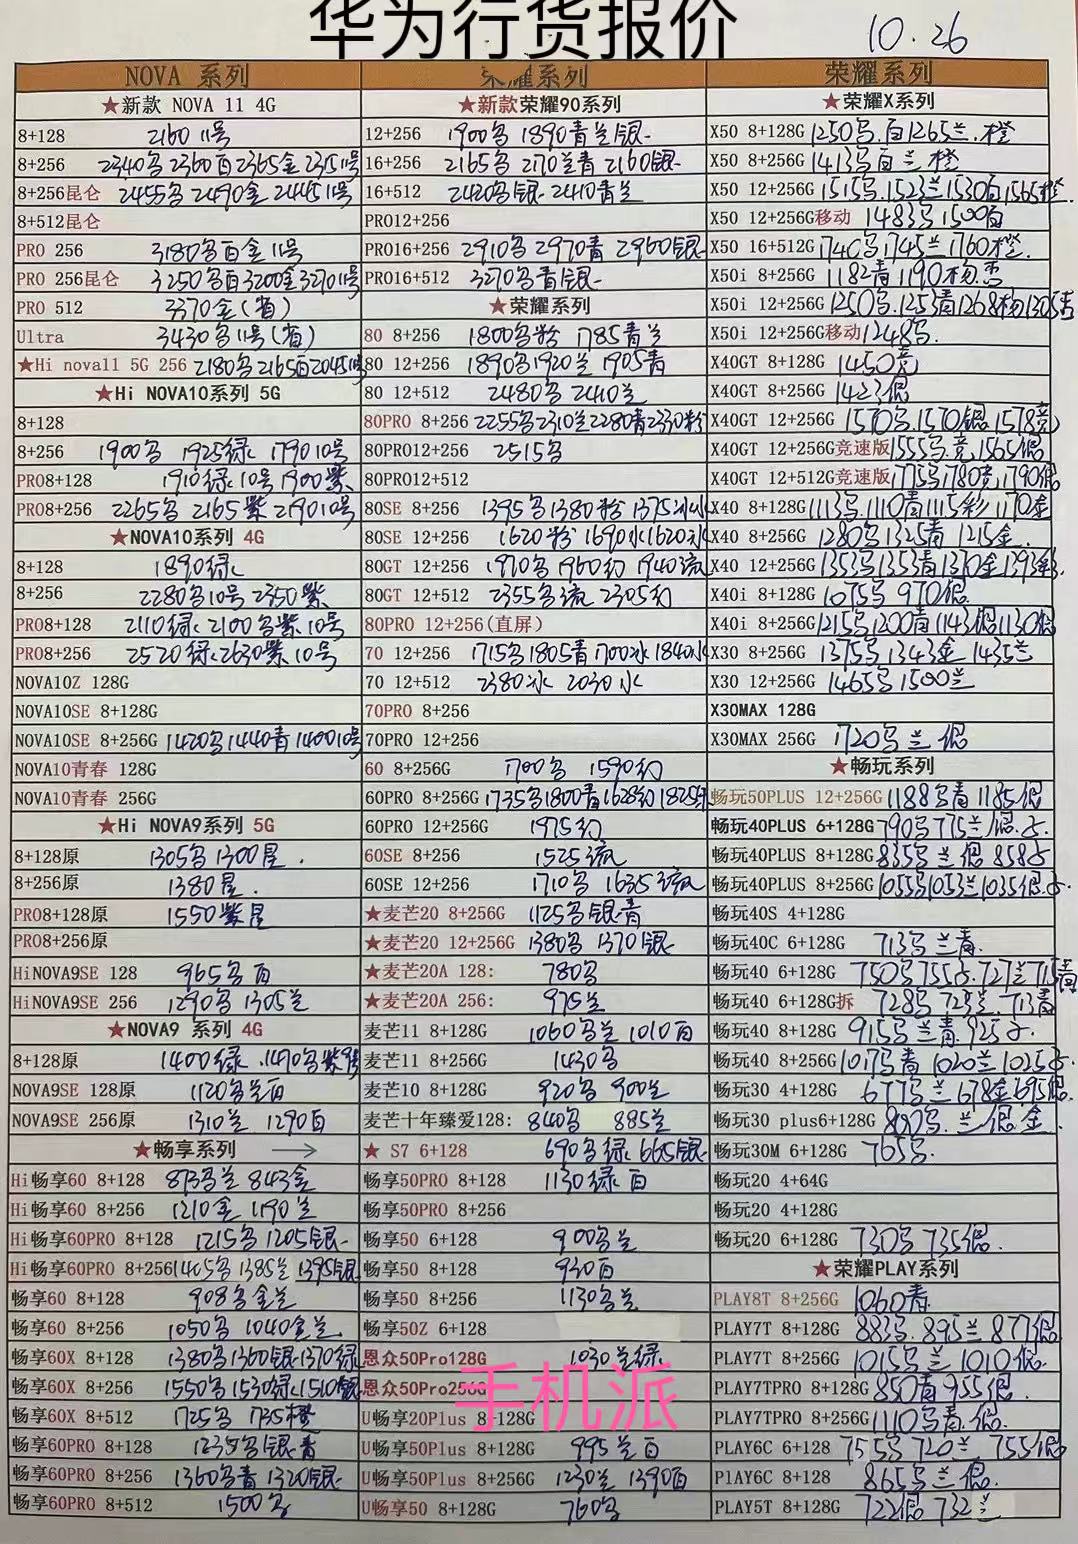 华为行货报价
10.26
NOVA 系列
★新款 NOVA 11 4G
8+128 2160 11号
8+256 2340名 2360百 2365金 2315 11号
8+256昆仑 2455名 2490金 2445 11号
8+512昆仑
PRO 256 3180名百金 11号
PRO 256昆仑 3250名百 3200金 3270 11号
PRO 512 3370金(省)
Ultra 3430名 11号(省)
★Hi nova11 5G 256 2180名 2165百 2045 11号
★Hi NOVA10系列 5G
8+128
8+256 1900名 1925绿 1790 10号
PRO8+128 1910绿 10号 1900紫
PRO8+256 2265名 2165紫 2190 10号
★NOVA10系列 4G
8+128 1890绿
8+256 2280名 10号 2350紫
PRO8+128 2110绿 2100名紫 10号
PRO8+256 2520绿 2630紫 10号
NOVA10Z 128G
NOVA10SE 8+128G
NOVA10SE 8+256G 1420名 1440青 1400 10号
NOVA10青春 128G
NOVA10青春 256G
★Hi NOVA9系列 5G
8+128原 1305名 1300星.
8+256原 1380星.
PRO8+128原 1550紫星
PRO8+256原
HiNOVA9SE 128 965名百
HiNOVA9SE 256 1290名 1305兰
★NOVA9 系列 4G
8+128原 1400绿.1490名紫9号
NOVA9SE 128原 1120名兰百
NOVA9SE 256原 1310兰 1290百
★畅享系列 →
Hi畅享60 8+128 873名兰 843金
Hi畅享60 8+256 1210金 1190兰
Hi畅享60PRO 8+128 1215名 1205银
Hi畅享60PRO 8+256 1405名 1385兰 1395银
畅享60 8+128 908名金兰
畅享60 8+256 1050名 1040金兰
畅享60X 8+128 1380名 1360银 1370绿
畅享60X 8+256 1550名 1530绿 1510银
畅享60X 8+512 1725名 1735橙
畅享60PRO 8+128 1235名银青
畅享60PRO 8+256 1360名青 1320银
畅享60PRO 8+512 1500名
荣耀系列
★新款荣耀90系列
12+256 1900名 1890青兰银
16+256 2165名 2170兰青 2160银
16+512 2420名银 2410青兰
PRO12+256
PRO16+256 2910名 2970青 2960银
PRO16+512 3270名青银
★荣耀系列
80 8+256 1800名粉 1785青兰
80 12+256 1890名 1920兰 1905青
80 12+512 2480名 2410兰
80PRO 8+256 2255名 2310兰 2280青 2330粉
80PRO12+256 2515名
80PRO12+512
80SE 8+256 1395名 1380粉 1375冰
80SE 12+256 1620粉 1690水 1620冰
80GT 12+256 1970名 1960幻 1940流
80GT 12+512 2355名流 2305幻
80PRO 12+256(直屏)
70 12+256 1715名 1805青 1700冰 1840水
70 12+512 2380冰 2030水
70PRO 8+256
70PRO 12+256
60 8+256G 1700名 1590幻
60PRO 8+256G 1735名 1800青 1628幻 1825绿
60PRO 12+256G 1975幻
60SE 8+256 1525流
60SE 12+256 1710名 1635流
★麦芒20 8+256G 1125名银青
★麦芒20 12+256G 1380名 1370银
★麦芒20A 128: 780名
★麦芒20A 256: 975兰
麦芒11 8+128G 1060名兰 1010百
麦芒11 8+256G 1430名
麦芒10 8+128G 920名 900兰
麦芒十年臻爱128: 840名 885兰
★ S7 6+128 690名绿 665银
畅享50PRO 8+128 1130绿百
畅享50PRO 8+256
畅享50 6+128 900名兰
畅享50 8+128 930百
畅享50 8+256 1130名兰
畅享50Z 6+128
恩众50Pro128G 1030兰绿
恩众50Pro256G
手机派
U畅享20Plus 8+128G
U畅享50Plus 8+128G 995兰百
U畅享50Plus 8+256G 1230兰 1390百
U畅享50 8+128G 760名
荣耀系列
★荣耀X系列
X50 8+128G 1250名.百 1265兰.橙
X50 8+256G 1413名百兰橙
X50 12+256G 1515名.1523兰 1530百 1565橙
X50 12+256G移动 1483名 1500百
X50 16+512G 1740名 1745兰 1760橙
X50i 8+256G 1182青 1190粉
X50i 12+256G 1250名.1253青 1268粉 1305
X50i 12+256G移动 1248名.
X40GT 8+128G 1450竞
X40GT 8+256G 1423银
X40GT 12+256G 1570名.1570银 1578竞
X40GT 12+256G竞速版 1555名.竞 1565银
X40GT 12+512G竞速版 1775名 1780竞 1790银
X40 8+128G 1113名.1110青 1115彩 1170金
X40 8+256G 1280名 1325青 1215金.
X40 12+256G 1353名 1353青 1370金 1393彩.
X40i 8+128G 1075名 970银.
X40i 8+256G 1215名 1200青 1143银 1130
X30 8+256G 1375名 1343金 1435兰
X30 12+256G 1465名 1500兰
X30MAX 128G
X30MAX 256G 1720名兰银
★畅玩系列
畅玩50PLUS 12+256G 1188名青 1185银
畅玩40PLUS 6+128G 790名 775兰银.
畅玩40PLUS 8+128G 835名兰银 858
畅玩40PLUS 8+256G 1055名 1053兰 1035银.
畅玩40S 4+128G
畅玩40C 6+128G 713名兰青.
畅玩40 6+128G 750名 755.727兰 715青
畅玩40 6+128G拆 728名 725兰.713青
畅玩40 8+128G 915名兰青.925
畅玩40 8+256G 1017名青 1020兰 1025
畅玩30 4+128G 677名兰 678金 695银.
畅玩30 plus6+128G 800名.兰银金.
畅玩30M 6+128G 765名.
畅玩20 4+64G
畅玩20 4+128G
畅玩20 6+128G 730名 735银.
★荣耀PLAY系列
PLAY8T 8+256G 1060青.
PLAY7T 8+128G 883名.895兰 877银
PLAY7T 8+256G 1015名兰 1010银.
PLAY7TPRO 8+128G 850青 955银.
PLAY7TPRO 8+256G 1110名青.银.
PLAY6C 6+128 755名 720兰 755银
PLAY6C 8+128 865名兰银.
PLAY5T 8+128G 722银 732兰